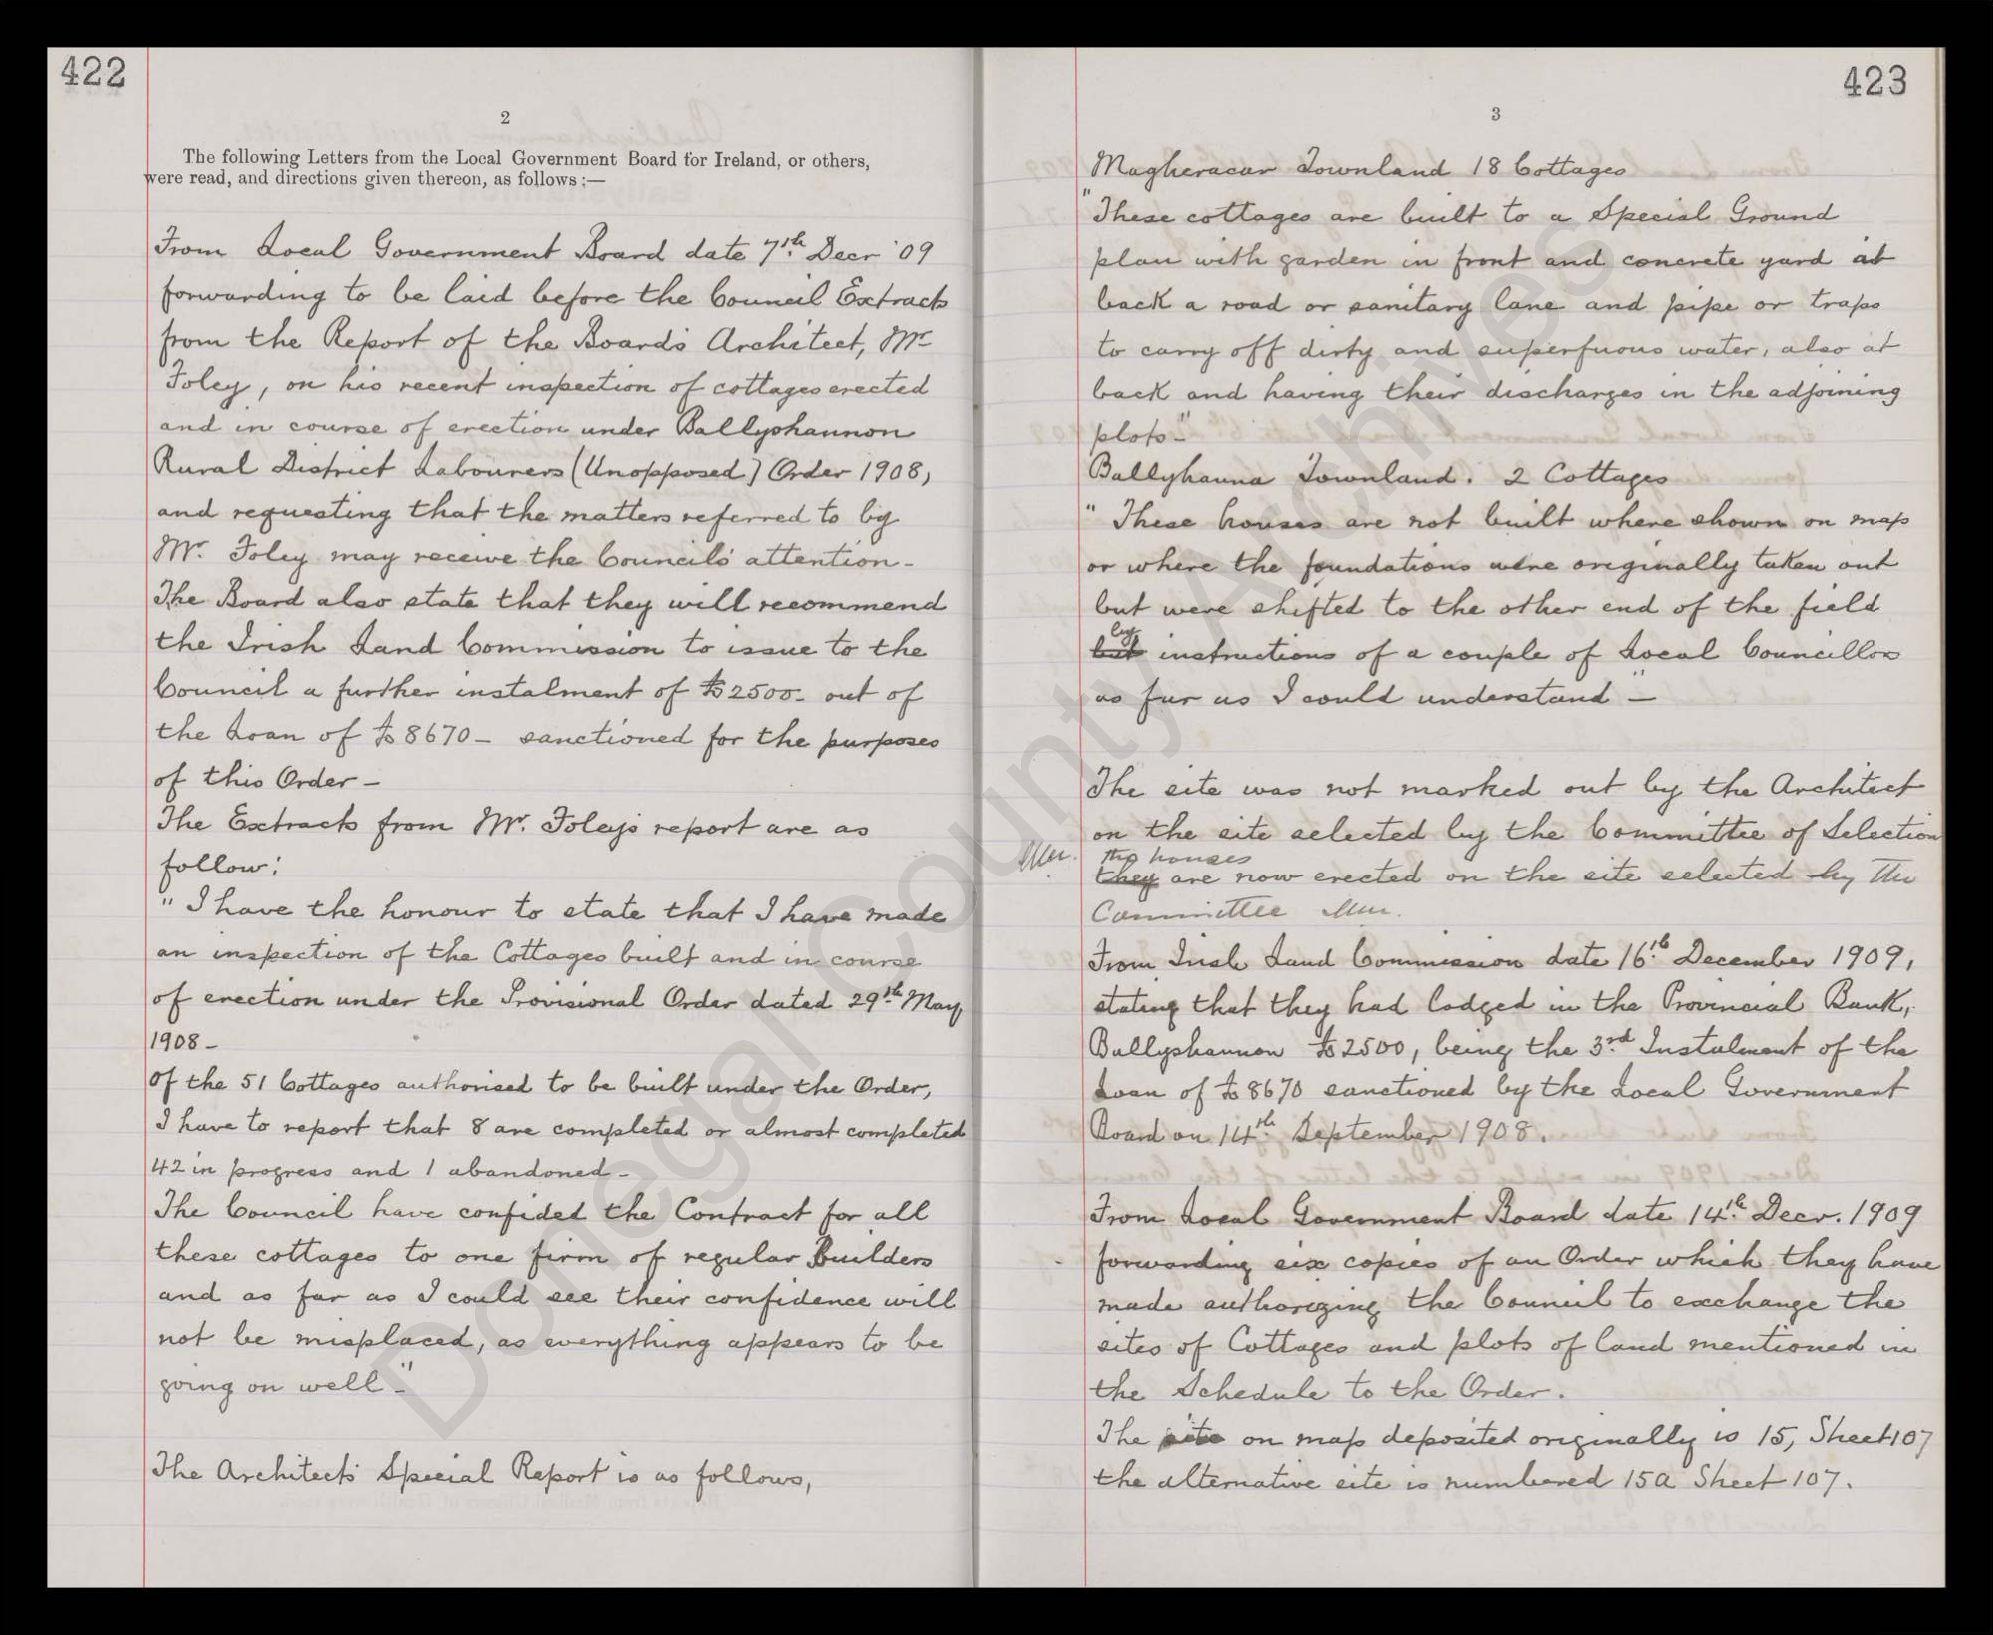 422
2
The following Letters from the Local Government Board for Ireland, or others,
were read, and directions given thereon, as follows :—
From Local Government Board date 7th Decr '09
forwarding to be laid before the Council Extracts
from the Report of the Board's Architect, Mr
Foley, on his recent inspection of cottages erected
and in course of erection under Ballyshannon
Rural District Labourers (Unopposed) Order 1908,
and requesting that the matters referred to by
Mr. Foley may receive the Council's attention-
The Board also state that they will recommend
the Irish Land Commission to issue to the
Council a further instalment of £2500- out of
the Loan of £8670- sanctioned for the purposes
of this Order-
The Extracts from Mr. Foley's report are as
follow:
" I have the honour to state that I have made
an inspection of the Cottages built and in course
of erection under the Provisional Order dated 29th May,
1908-
Of the 51 Cottages authorised to be built under the Order,
I have to report that 8 are completed or almost completed
42 in progress and 1 abandoned-
The Council have confided the Contract for all
these cottages to one firm of regular Builders
and as far as I could see their confidence will
not be misplaced, as everything appears to be
going on well-"
The Architect's Special Report is as follows,
423
3
Magheracar Townland 18 Cottages
"These cottages are built to a Special Ground
plan with garden in front and concrete yard at
back a road or sanitary lane and pipe or traps
to carry off dirty and superfuous water, also at
back and having their discharges in the adjoining
plots-"
Ballyhanna Townland. 2 Cottages
" These houses are not built where shown on map
or where the foundations were originally taken out
but were shifted to the other end of the field
by
but instructions of a couple of Local Councillors
as far as I could understand"-
The site was not marked out by the Architect
on the site selected by the Committee of Selection
the houses
they are now erected on the site selected by the
Committee
From Irish Land Commission date 16th December 1909,
stating that they had lodged in the Provincial Bank,
Ballyshannon £2500, being the 3rd Instalment of the
Loan of £8670 sanctioned by the Local Government
Board on 14th September 1908.
From Local Government Board date 14th Decr. 1909
forwarding six copies of an Order which they have
made authorizing the Council to exchange the
sites of Cottages and plots of land mentioned in
the Schedule to the Order.
The site on map deposited originally is 15, Sheet 107
the alternative site is numbered 15A Sheet 107.
Donegal County Archives